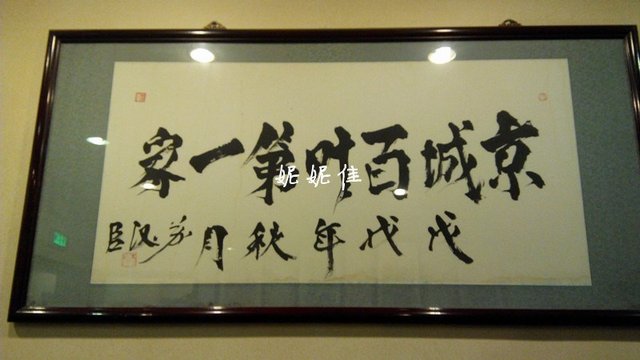 京城百叶第一家
妮妮佳
戊戌年秋月